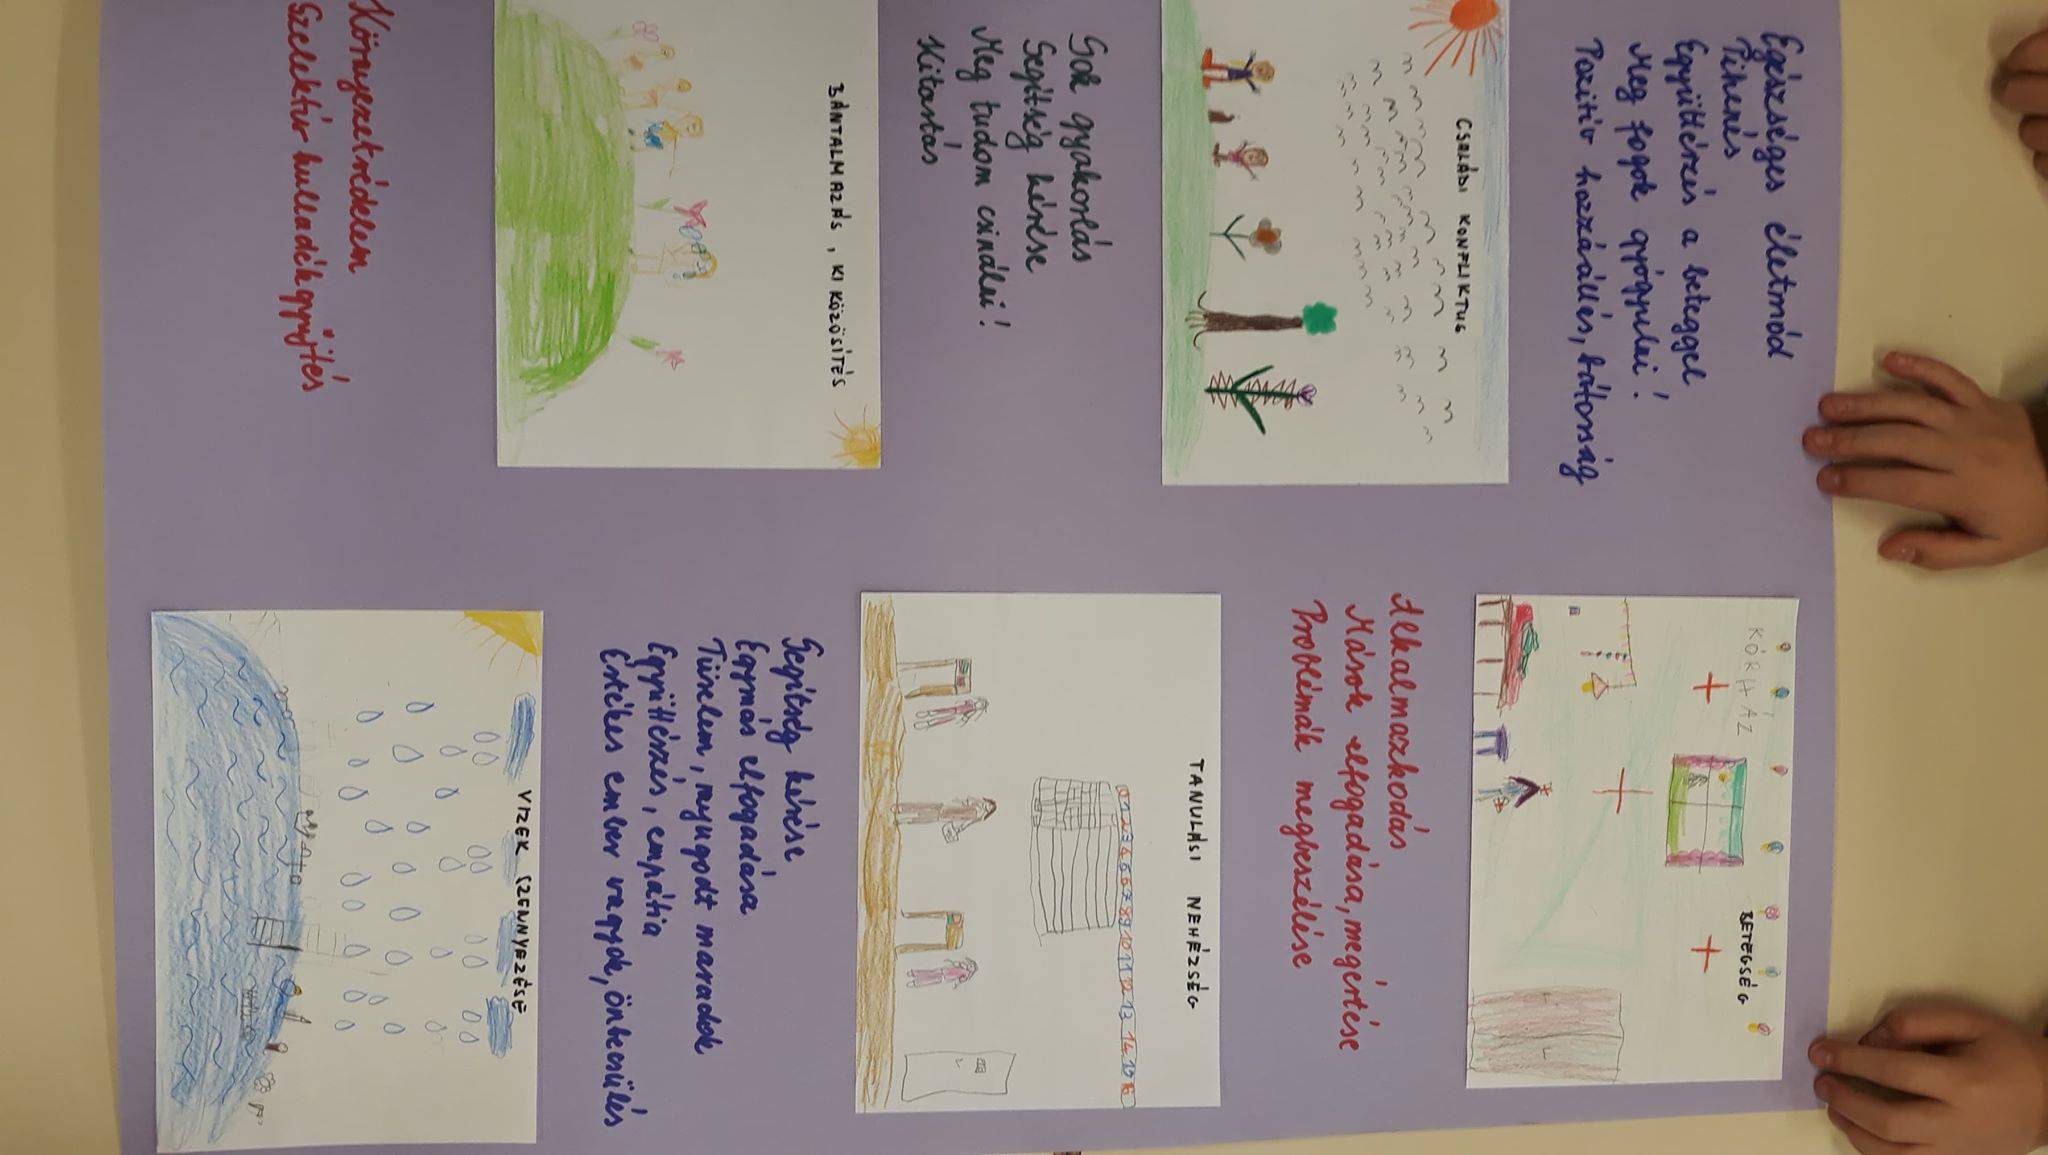 Egészséges életmód
Pihenés
Együttérzés a beteggel
Meg fogok gyógyulni!
Pozitív hozzáállás, bátorság
KÓRHÁZ
BETEGSÉG
CSALÁDI KONFLIKTUS
Alkalmazkodás
Mások elfogadása, megértése
Problémák megbeszélése
Sok gyakorlás
Segítség kérése
Meg tudom csinálni!
Kitartás
TANULÁSI NEHÉZSÉG
0 1 2 3 4 5 6 7 8 9 10 11 12 13 14 15 16
BÁNTALMAZÁS, KIKÖZÖSÍTÉS
Segítség kérése
Egymás elfogadása
Türelem, nyugodt maradok
Együttérzés, empátia
Értékes ember vagyok, önbecsülés
Környezetvédelem
Szelektív hulladékgyűjtés
VIZEK SZENNYEZÉSE